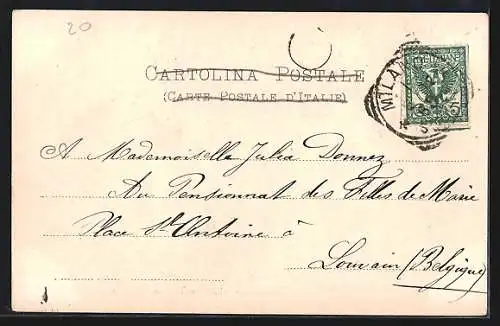 20
CARTOLINA POSTALE
(CARTE POSTALE D'ITALIE)
MILA
5
A Mademoiselle Julia Donnez
Au Pensionnat des Filles de Marie
Place St Antoine à
Louvain (Belgique)